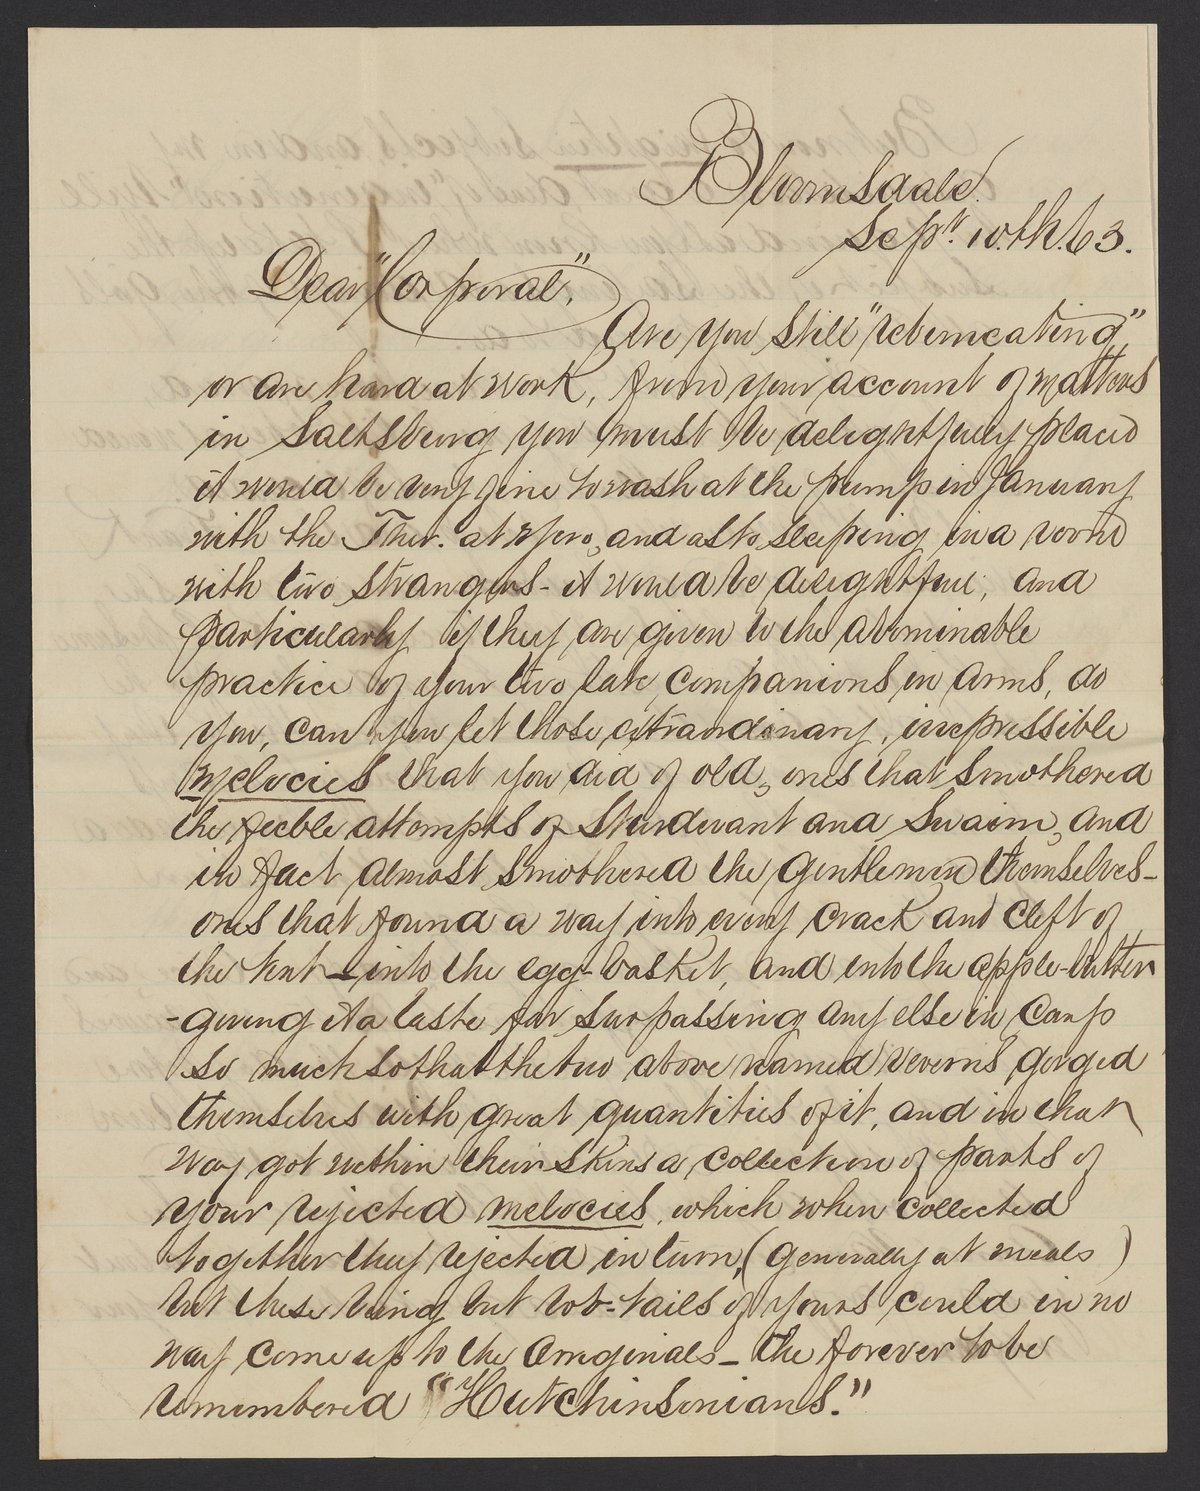 Bloomsdale.
Sept. 10.th. 63.
Dear "Corporal",
Are you still "reberneating",
or are hard at work, from your account of matters
in Saltsburg you must be delightfully placed
it would be very fine to wash at the pump in January
with the Ther. at zero, and as to sleeping in a room
with two strangers - it would be delightful, and
particularly if they are given to the abominable
practice of your two late companions in arms, do
you, can you let those extraordinary, irrepressible
melocies that you did of old, ones that smothered
the feeble attempts of Sturdevant and Swaim, and
in fact almost smothered the gentlemen themselves -
ones that found a way into every crack and cleft of
the tent - into the egg-basket, and into the apple-butter
- giving it a taste far surpassing any else in camp
so much so that the two above named gorged
themselves with great quantities of it, and in that
way got within their skins a collection of parts of
your rejected melocies, which when collected
together they rejected in turn, (generally at meals)
but these being but bob-tails of yours could in no
way come up to the originals - the forever to be
remembered "Hutchinsonians."